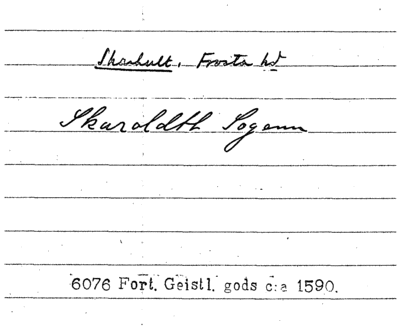 Skarhult, Frosta hd
Skaroldth Sogenn
6076 Fort. Geistl. gods c:a 1590.